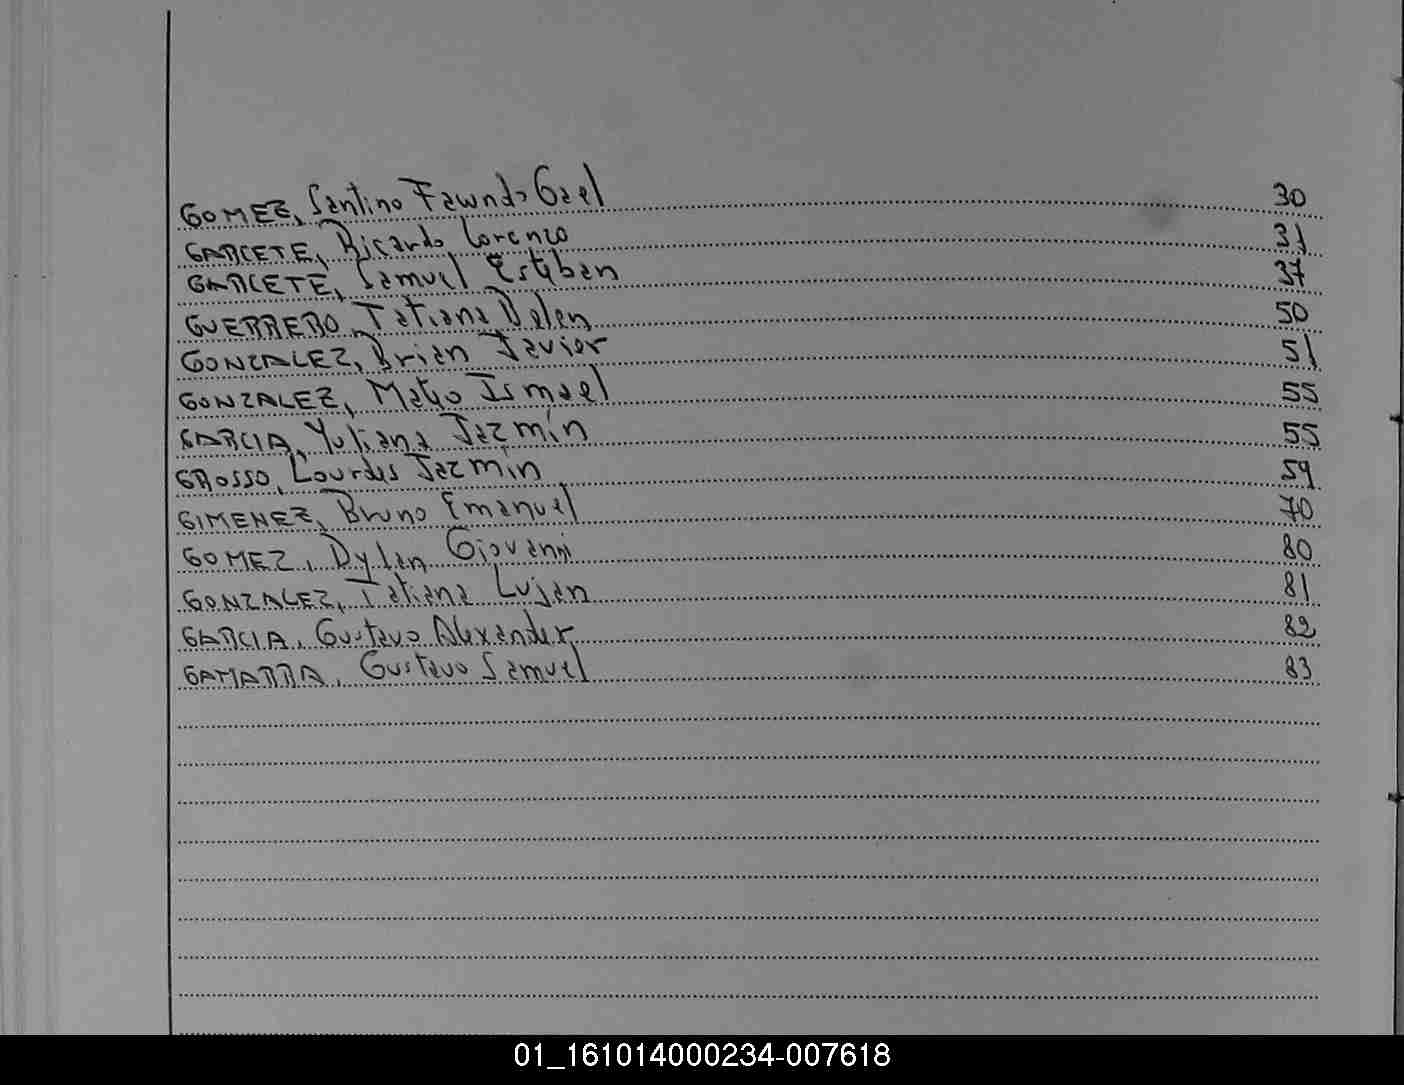 GOMEZ, Santino Facundo Gael 30
GARCETE, Ricardo Lorenzo 31
GARCETE, Samuel Esteban 37
GUERRERO, Tatiana Belen 50
GONZALEZ, Brian Javier 51
GONZALEZ, Mateo Ismael 55
GARCIA, Yuliana Jazmín 55
GROSSO, Lourdes Jazmin 59
GIMENEZ, Bruno Emanuel 70
GOMEZ, Dylan Giovanni 80
GONZALEZ, Tatiana Lujan 81
GARCIA, Gustavo Alexander 82
GAMARRA, Gustavo Samuel 83
01_161014000234-007618